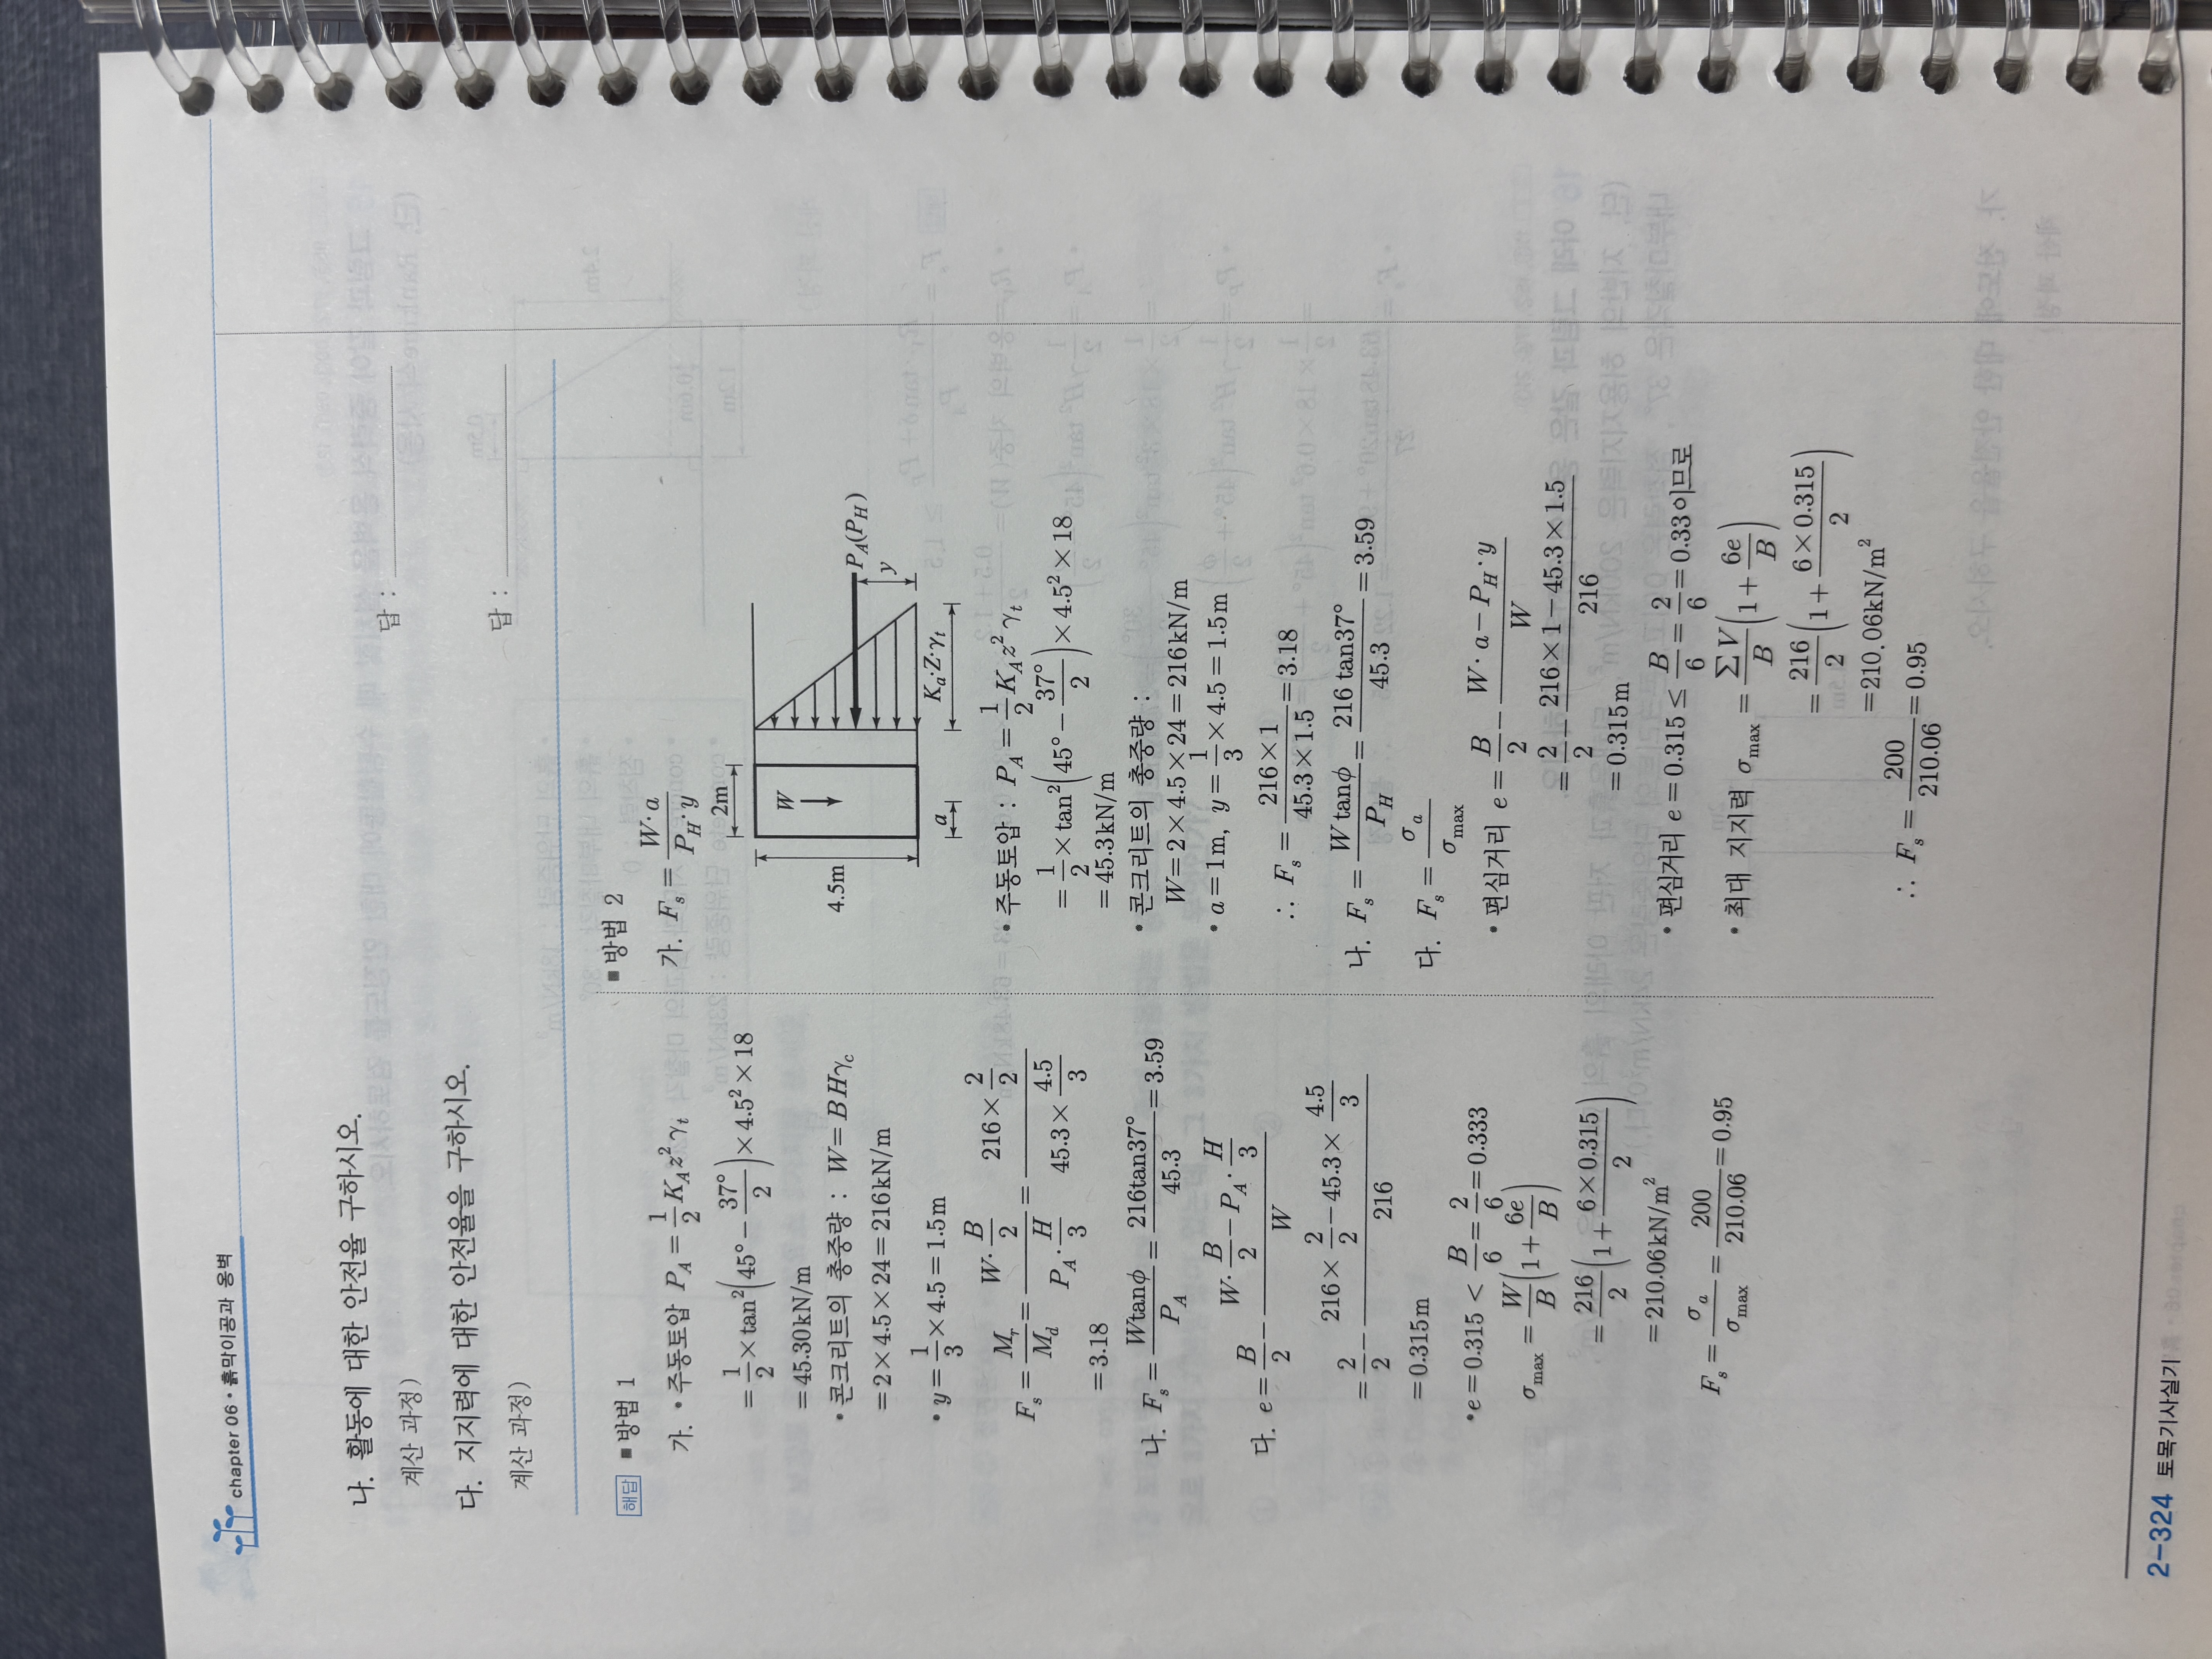 chapter 06 • 흙막이공과 옹벽
나. 활동에 대한 안전율 구하시오.
계산 과정)
답 :
다. 지지력에 대한 안전율을 구하시오.
계산 과정)
답 :
해답
■ 방법 1
가. • 주동토압 P_A = 1/2 K_A z² γ_t
= 1/2 × tan²(45° − 37°/2) × 4.5² × 18
= 45.30kN/m
• 콘크리트의 총중량 : W = BHγ_c
= 2×4.5×24 = 216kN/m
• y = 1/3 × 4.5 = 1.5m
F_s = M_r/M_d = (W· B/2)/(P_A· H/3) = (216× 2/2)/(45.3× 4.5/3)
= 3.18
나. F_s = Wtanϕ/P_A = 216tan37°/45.3 = 3.59
다. e = B/2 − (W· B/2 − P_A· H/3)/W
= 2/2 − (216× 2/2 − 45.3× 4.5/3)/216
= 0.315m
•e = 0.315 < B/6 = 2/6 = 0.333
σ_max = W/B (1 + 6e/B)
= 216/2 (1 + 6×0.315/2)
= 210.06kN/m²
F_s = σ_a/σ_max = 200/210.06 = 0.95
■ 방법 2
가. F_s = W·a/P_H·y
2m
W
4.5m
a
P_A(P_H)
y
K_a·Z·γ_t
• 주동토압 : P_A = 1/2 K_A z² γ_t
= 1/2 × tan²(45° − 37°/2) × 4.5² × 18
= 45.3kN/m
• 콘크리트의 총중량 :
W = 2×4.5×24 = 216kN/m
• a = 1m, y = 1/3 × 4.5 = 1.5m
∴ F_s = 216×1/45.3×1.5 = 3.18
나. F_s = W tanϕ/P_H = 216 tan37°/45.3 = 3.59
다. F_s = σ_a/σ_max
• 편심거리 e = B/2 − (W·a − P_H·y)/W
= 2/2 − (216×1 − 45.3×1.5)/216
= 0.315m
• 편심거리 e = 0.315 ≤ B/6 = 2/6 = 0.33이므로
• 최대 지지력 σ_max = ΣV/B (1 + 6e/B)
= 216/2 (1 + 6×0.315/2)
= 210.06kN/m²
∴ F_s = 200/210.06 = 0.95
2-324 토목기사실기